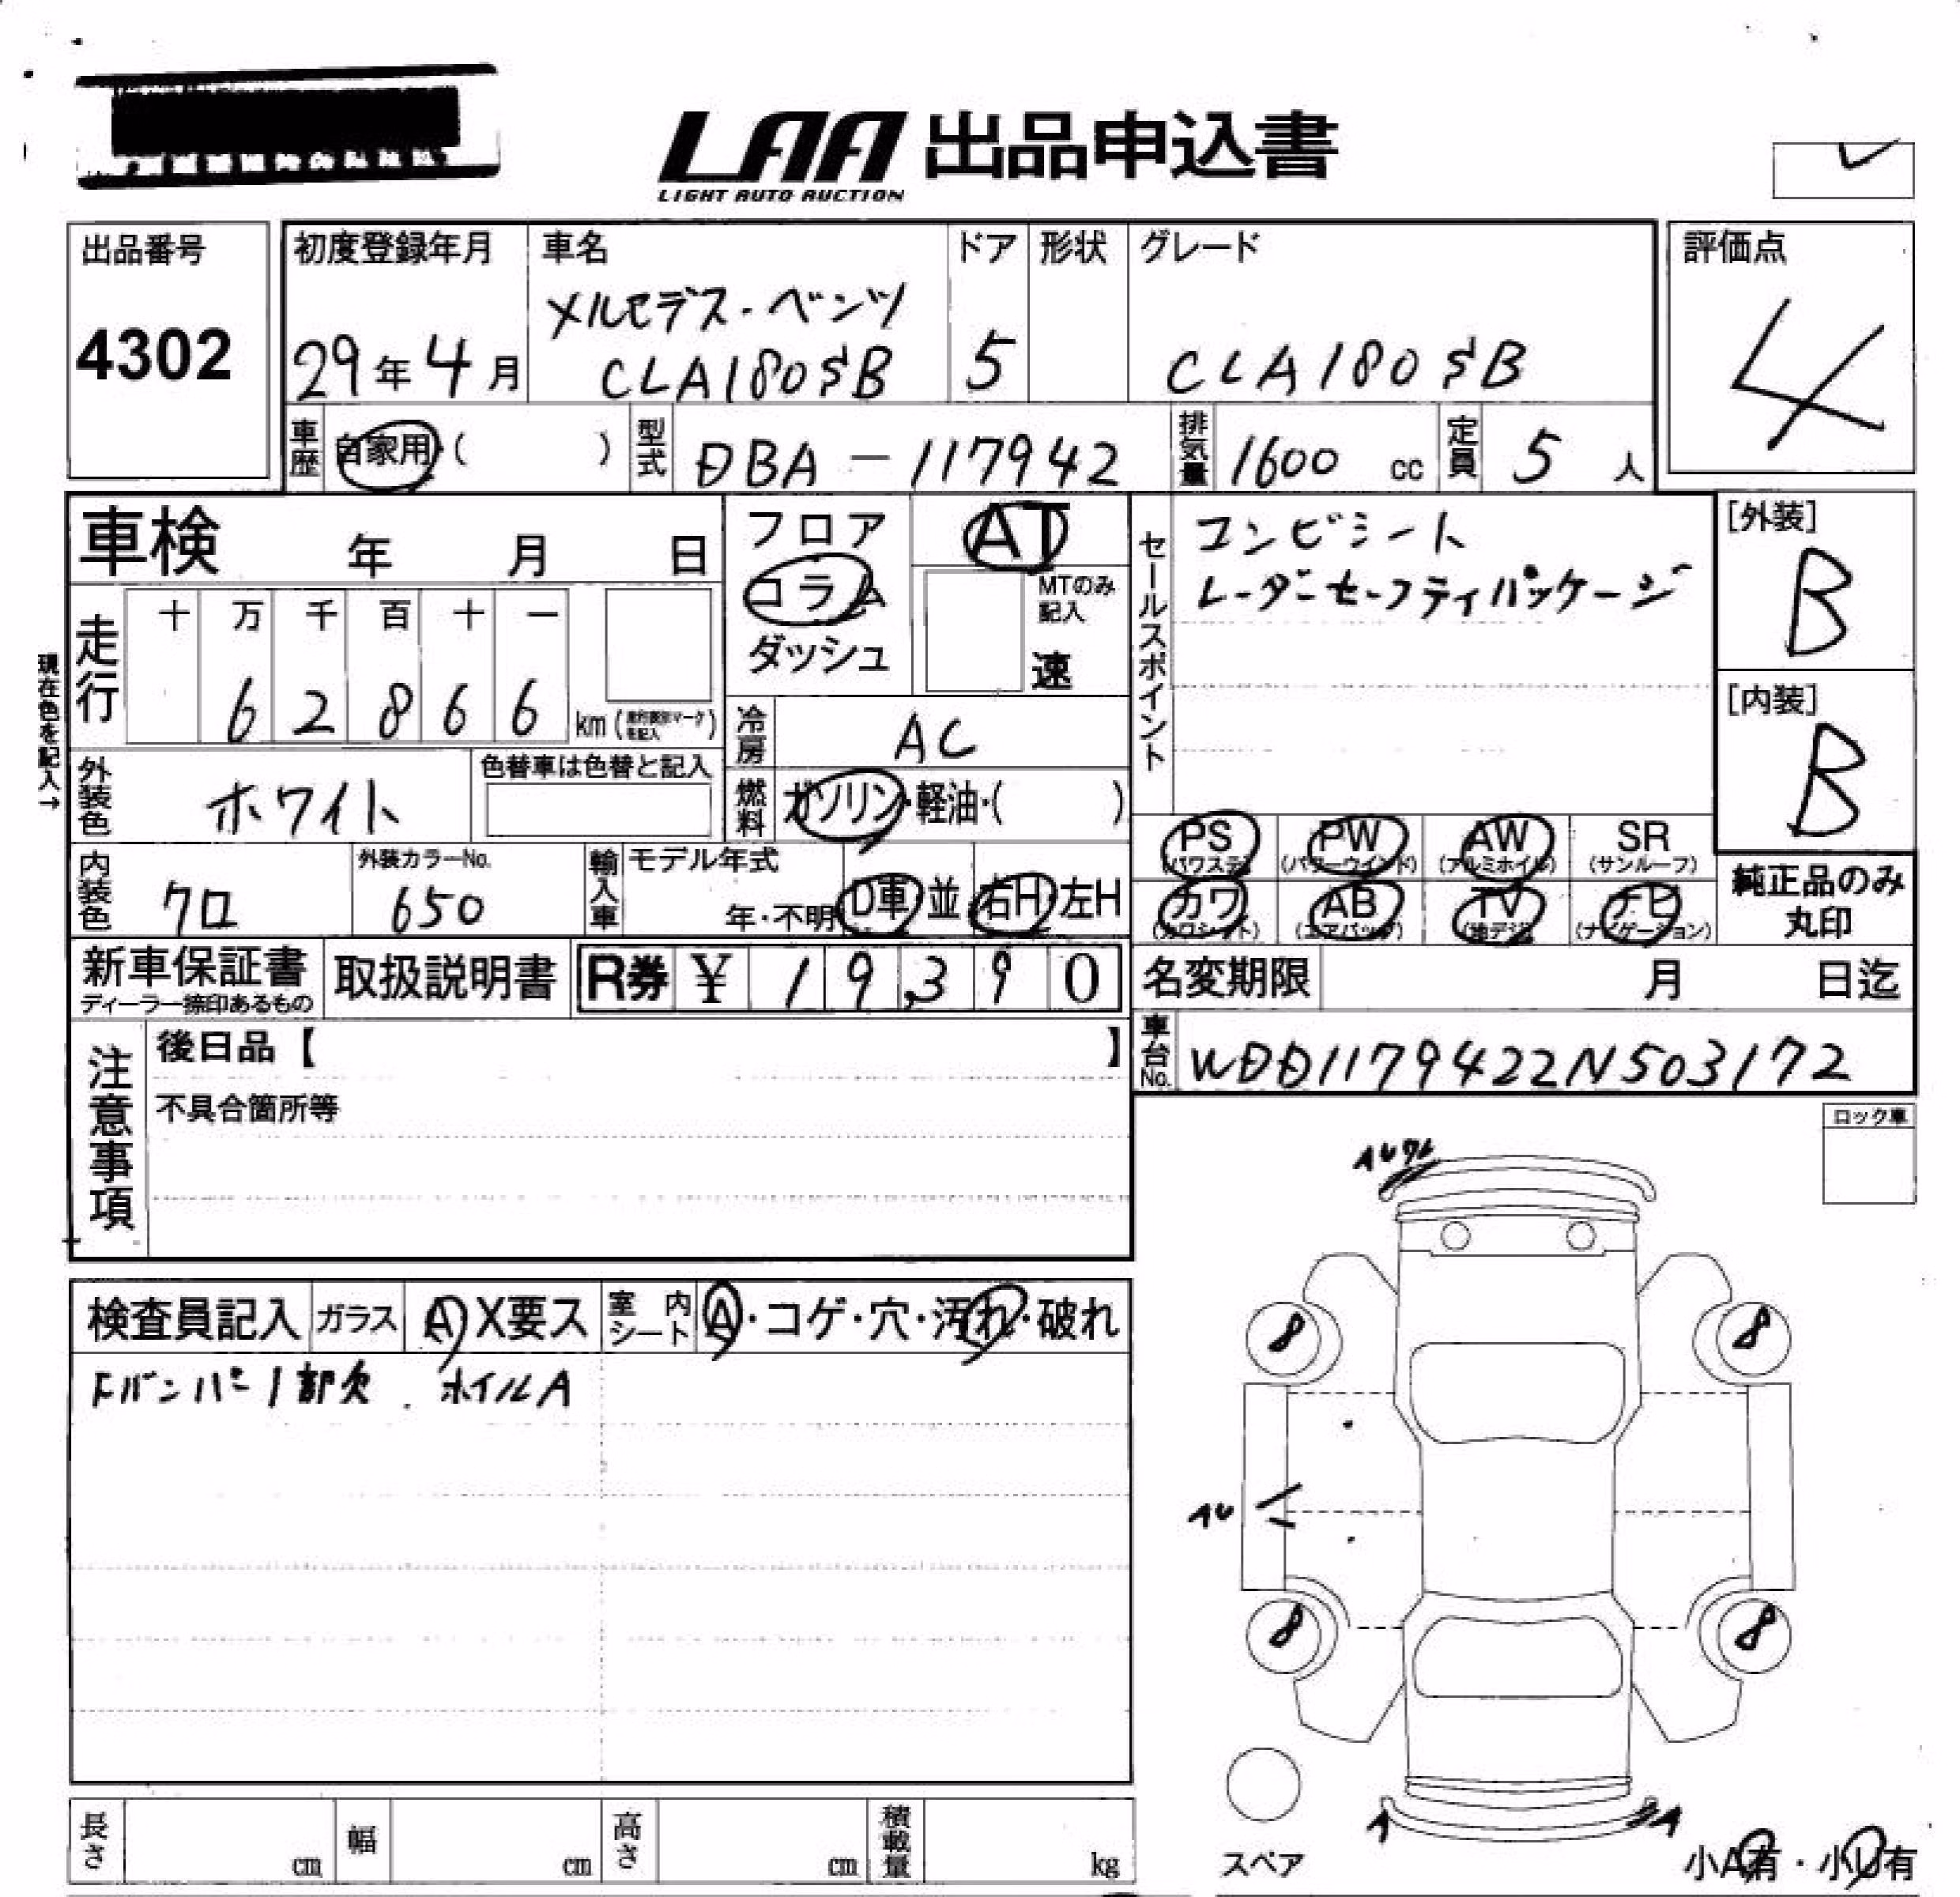 LAA 出品申込書
LIGHT AUTO AUCTION
出品番号
4302
初度登録年月
29年 4月
車名
メルセデス・ベンツ
CLA180SB
ドア
5
形状
グレード
CLA180 SB
評価点
4
車歴 自家用・( )
型式 DBA-117942
排気量 1600 cc
定員 5 人
車検 年 月 日
フロア
コラム
ダッシュ
AT
MTのみ
記入
速
セールスポイント
コンビシート
レーダーセーフティパッケージ
[外装]
B
[内装]
B
現在色を記入→
走行
十 万 千 百 十 一
6 2 8 6 6
km
冷房 AC
燃料 ガソリン・軽油・( )
外装色 ホワイト
色替車は色替と記入
内装色 クロ
外装カラーNo.
650
輸入車 モデル年式
年・不明 D車 並 右H・左H
PS PW AW SR
(パワステ) (パワーウインド) (アルミホイル) (サンルーフ)
カワ AB TV ナビ
(カワシート) (エアバッグ) (地デジ) (ナビゲーション)
純正品のみ
丸印
新車保証書
ディーラー捺印あるもの
取扱説明書
R券 ¥ 19,390
名変期限 月 日迄
車台No. WDD1179422N503172
注意事項
後日品【 】
不具合箇所等
ロック車
検査員記入 ガラス A X要ス 室内シート A・コゲ・穴・汚れ・破れ
Fバンパー1部欠. ホイルA
AU
8 8
AU
8 8
スペア
A A
小A有・小U有
長さ cm 幅 cm 高さ cm 積載量 kg